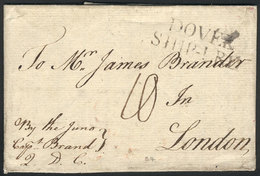 DOVER
SHIP LRE
To Mr. James Brander
10
In
London
By the Juno
Capt. Brand
Q D C